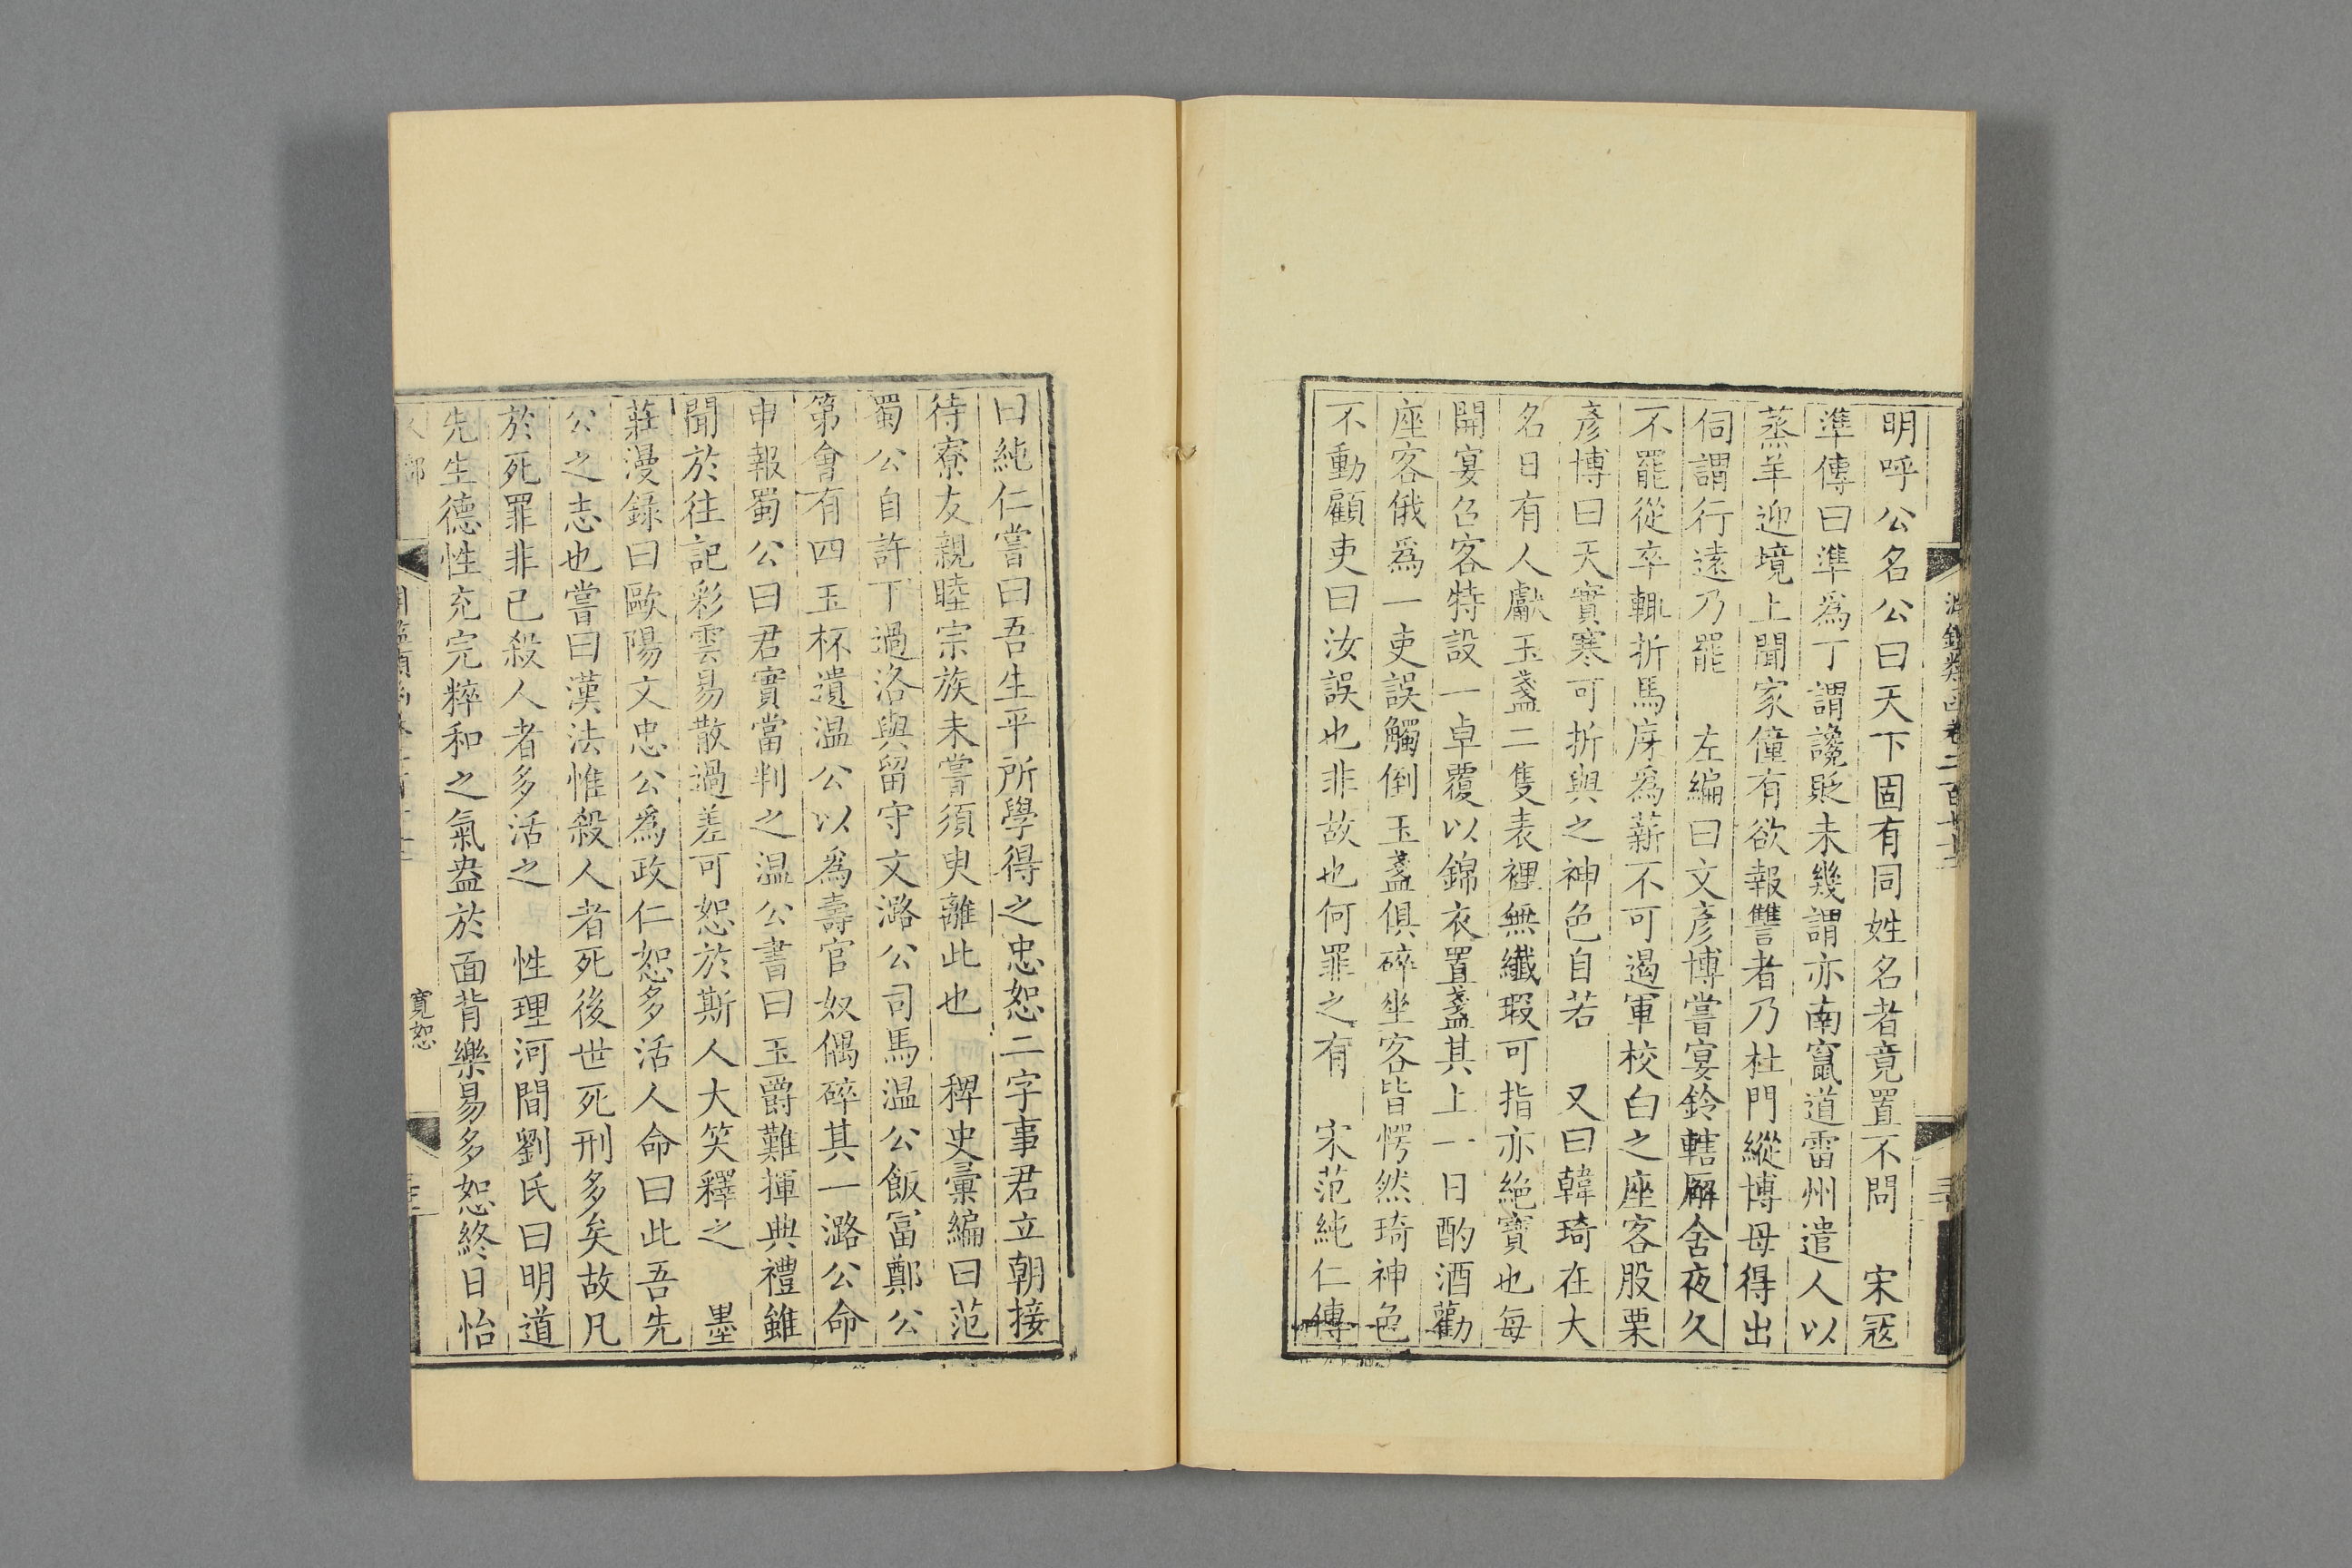 明呼公名公曰天下固有同姓名者竟置不問　宋寇
準傳曰準爲丁謂讒貶未幾謂亦南竄道雷州遣人以
蒸羊迎境上聞家僮有欲報讐者乃杜門縱博毋得出
伺謂行遠乃罷　左編曰文彥博嘗宴鈴轄廨舍夜久
不罷從卒輒折馬庌爲薪不可遏軍校白之座客股栗
彥博曰天實寒可折與之神色自若　又曰韓琦在大
名日有人獻玉盞二隻表裡無纖瑕可指亦絶寶也每
開宴召客特設一卓覆以錦衣置盞其上一日酌酒勸
座客俄爲一吏誤觸倒玉盞俱碎坐客皆愕然琦神色
不動顧吏曰汝誤也非故也何罪之有　宋范純仁傳
曰純仁嘗曰吾生平所學得之忠恕二字事君立朝接
待寮友親睦宗族未嘗須臾離此也　稗史彙編曰范
蜀公自許丁過洛與留守文潞公司馬温公飯富鄭公
第會有四玉杯遺温公以爲壽官奴偶碎其一潞公命
申報蜀公曰君實當判之温公書曰玉爵難揮典禮雖
聞於往記彩雲易散過差可恕於斯人大笑釋之　墨
莊漫錄曰歐陽文忠公爲政仁恕多活人命曰此吾先
公之志也嘗曰漢法惟殺人者死後世死刑多矣故凡
於死罪非已殺人者多活之　性理河間劉氏曰明道
先生德性充完粹和之氣盎於面背樂易多恕終日怡
寬恕